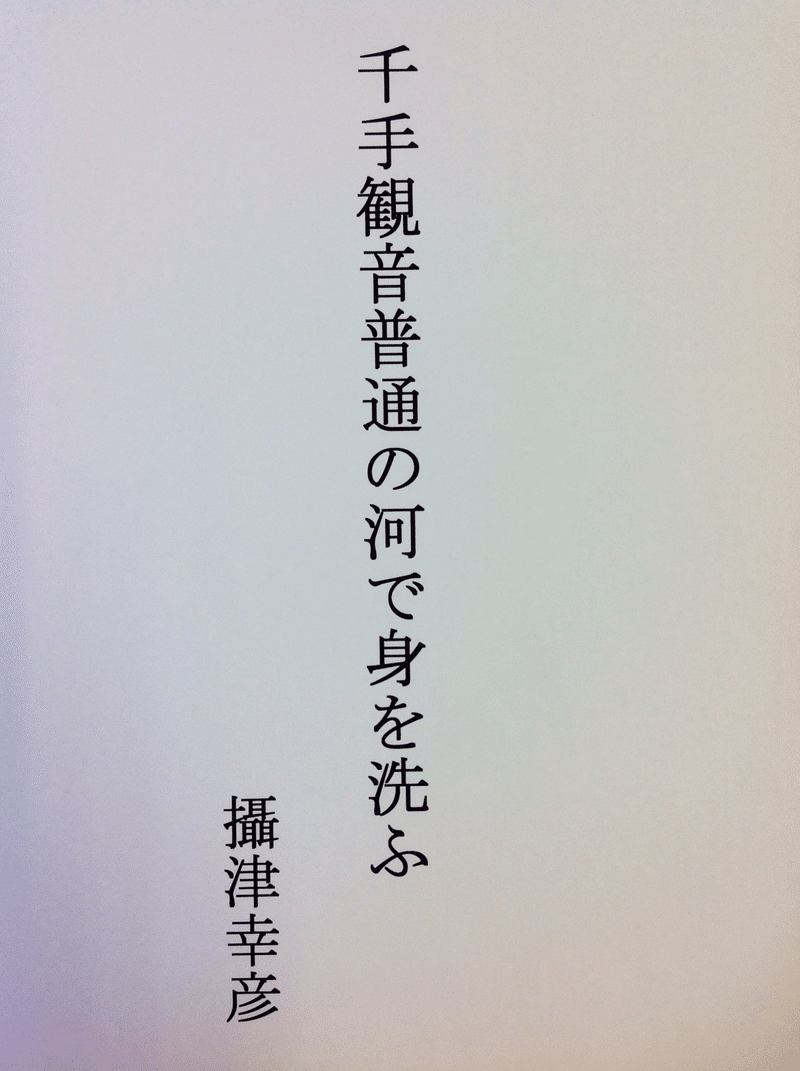 千手観音普通の河で身を洗ふ
攝津幸彦